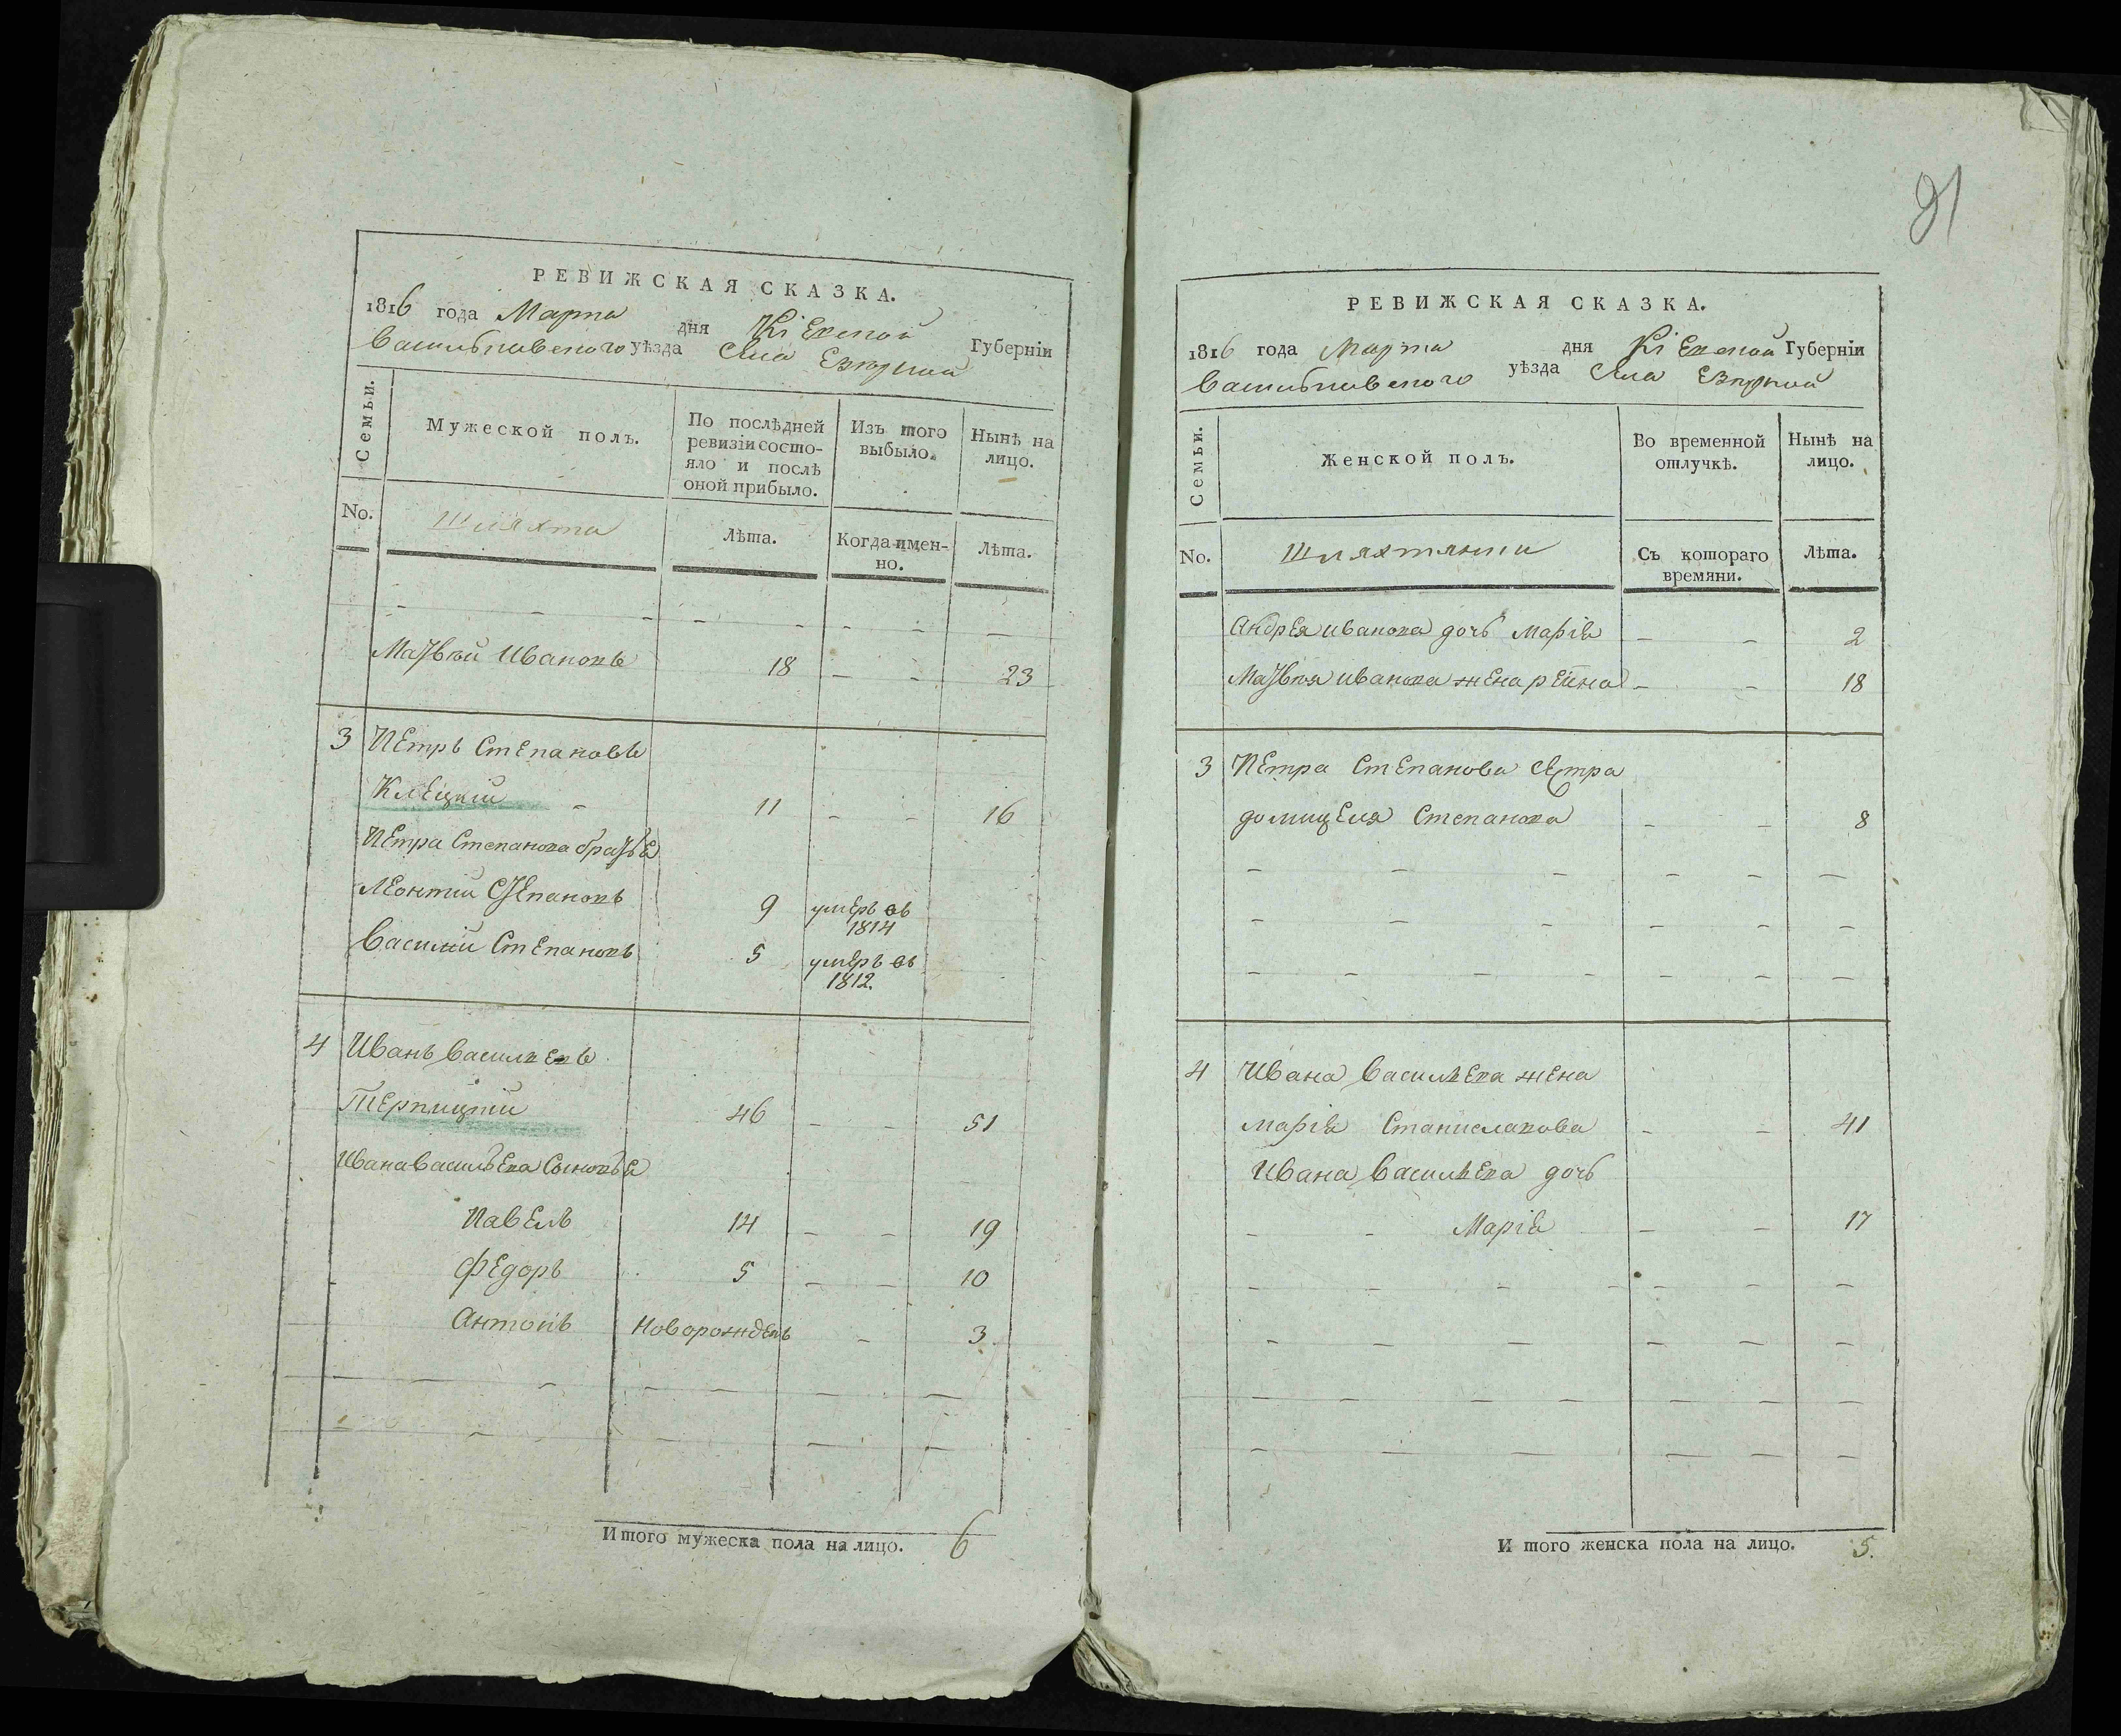 РЕВИЖСКАЯ СКАЗКА.
1816 года Марта дня Кіевской Губерніи
Васильковского уѣзда Села Езерной
Семьи.
Мужеской полъ.
По послѣдней ревизіи состо-
яло и послѣ
оной прибыло.
Изъ того
выбыло.
Нынѣ на
лицо.
No.
Шляхта
Лѣта.
Когда имен-
но.
Лѣта.
Матвѣй Ивановъ 18 - - 23
3 Петръ Степановъ
Клецкій - 11 - - 16
Петра Степанова братья
Леонтий Степановъ 9 умеръ въ
1814
Василий Степановъ 5 умеръ въ
1812.
4 Иванъ Васильевъ
46 - - 51
Ивана Васильева Сыновья
Павелъ 14 - - 19
Федоръ 5 - - 10
Антонъ Новорожденъ - 3
Итого мужеска пола на лицо. 6
91
РЕВИЖСКАЯ СКАЗКА.
1816 года Марта дня Кіевской Губерніи
Васильковского уѣзда Села Езерной
Семьи.
Женской полъ.
Во временной
отлучкѣ.
Нынѣ на
лицо.
No.
Шляхтянки
Съ котораго
времяни.
Лѣта.
Андрея Иванова дочь Марія - - 2
Матвѣя Иванова жена - - 18
3 Петра Степанова Сестра
Домицеля Степанова - - 8
4 Ивана Васильева жена
Марія Станиславова - - 41
Ивана Васильева дочь
- - Марія - - 17
И того женска пола на лицо. 5.